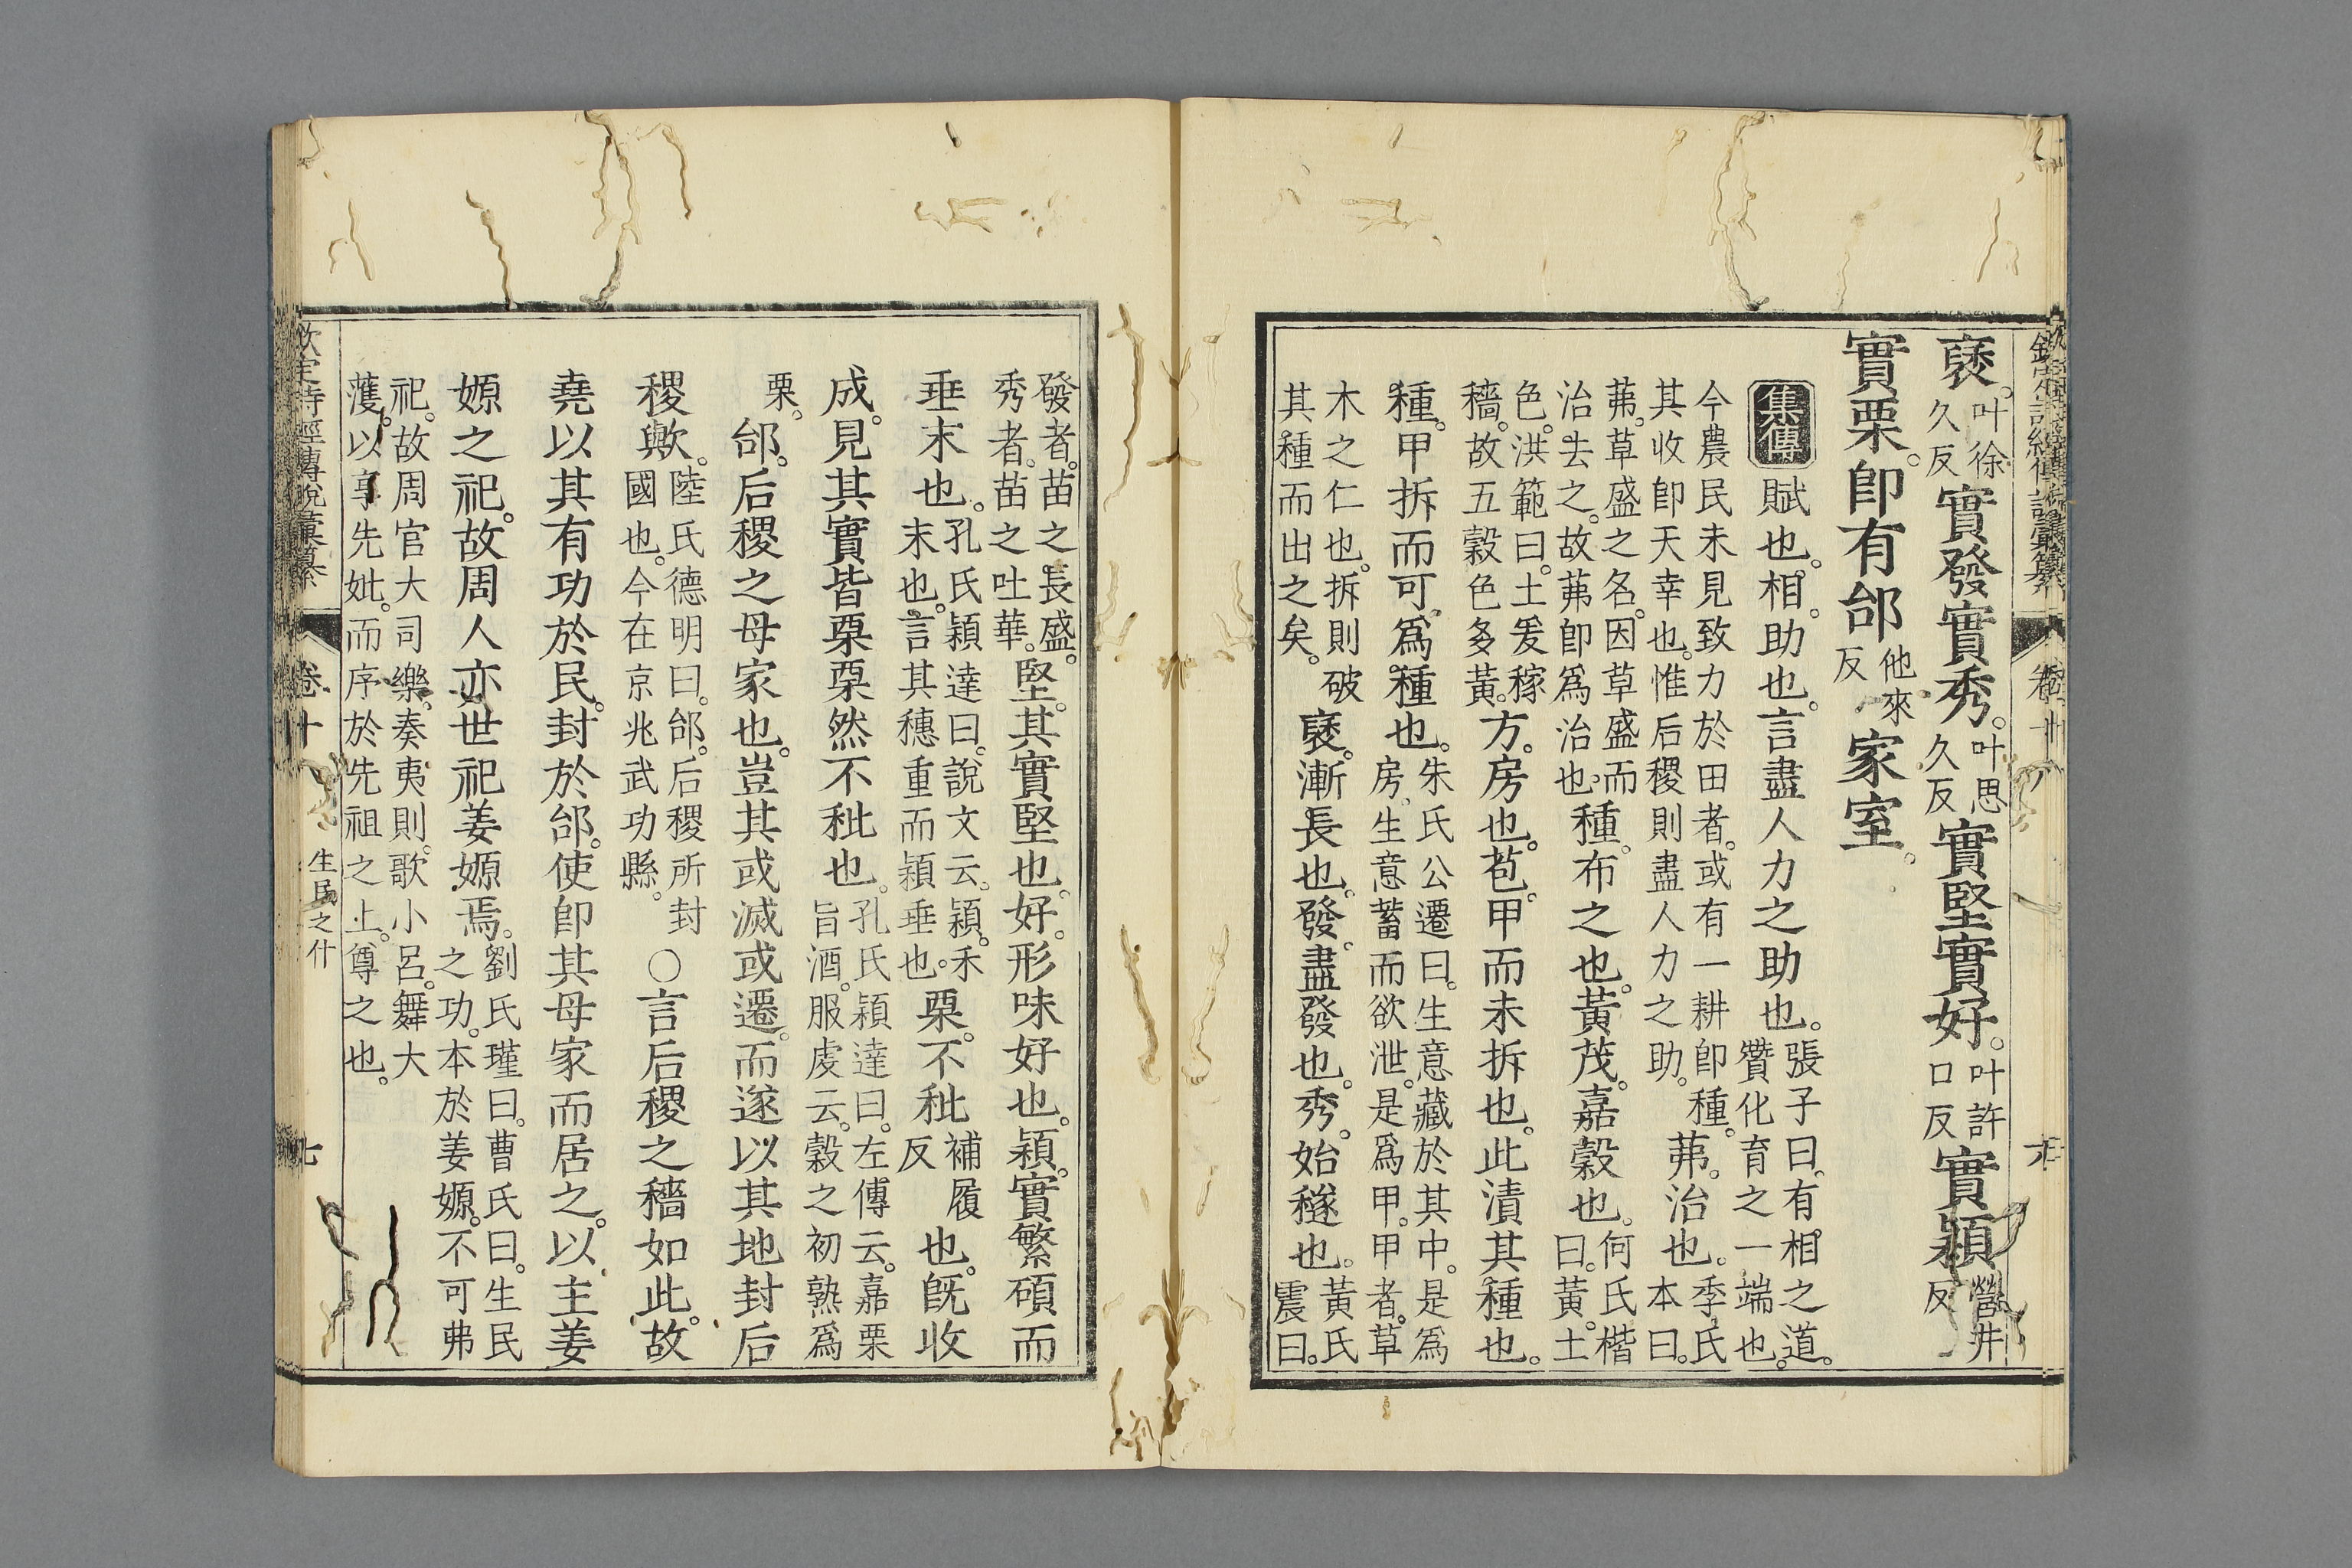 褎。叶徐久反實發實秀。叶思久反實堅實好。叶許口反實穎營井反
實栗。卽有邰他來反家室。
集傳 賦也。相。助也。言盡人力之助也。張子曰。有相之道。贊化育之一端也。
今農民未見致力於田者。或有一耕卽種。其收卽天幸也。惟后稷則盡人力之助。茀。治也。季氏本曰。
茀。草盛之名。因草盛而治去之。故茀卽爲治也。種。布之也。黃茂。嘉穀也。何氏楷曰。黃。土
色。洪範曰。土爰稼穡。故五穀色多黃。方。房也。苞。甲而未拆也。此漬其種也。
種。甲拆而可爲種也。朱氏公遷曰。生意藏於其中。是爲房。生意蓄而欲泄。是爲甲。甲者。草
木之仁也。拆則破其種而出之矣。褎。漸長也。發。盡發也。秀。始穟也。黃氏震曰。
發者。苗之長盛。秀者。苗之吐華。堅。其實堅也。好。形味好也。穎。實繁碩而
垂末也。孔氏穎達曰。說文云。穎。禾末也。言其穗重而穎垂也。栗。不秕補履反也。旣收
成。見其實皆栗栗然不秕也。孔氏穎達曰。左傳云。嘉栗旨酒。服虔云。穀之初熟爲
栗。邰。后稷之母家也。豈其或滅或遷。而遂以其地封后
稷歟。陸氏德明曰。邰。后稷所封國也。今在京兆武功縣。○言后稷之穡如此。故
堯以其有功於民。封於邰。使卽其母家而居之。以主姜
嫄之祀。故周人亦世祀姜嫄焉。劉氏瑾曰。曹氏曰。生民之功。本於姜嫄。不可弗
祀。故周官大司樂。奏夷則。歌小呂。舞大濩。以享先妣。而序於先祖之上。尊之也。
欽定詩經傳說彙纂 卷十 生民之什 七